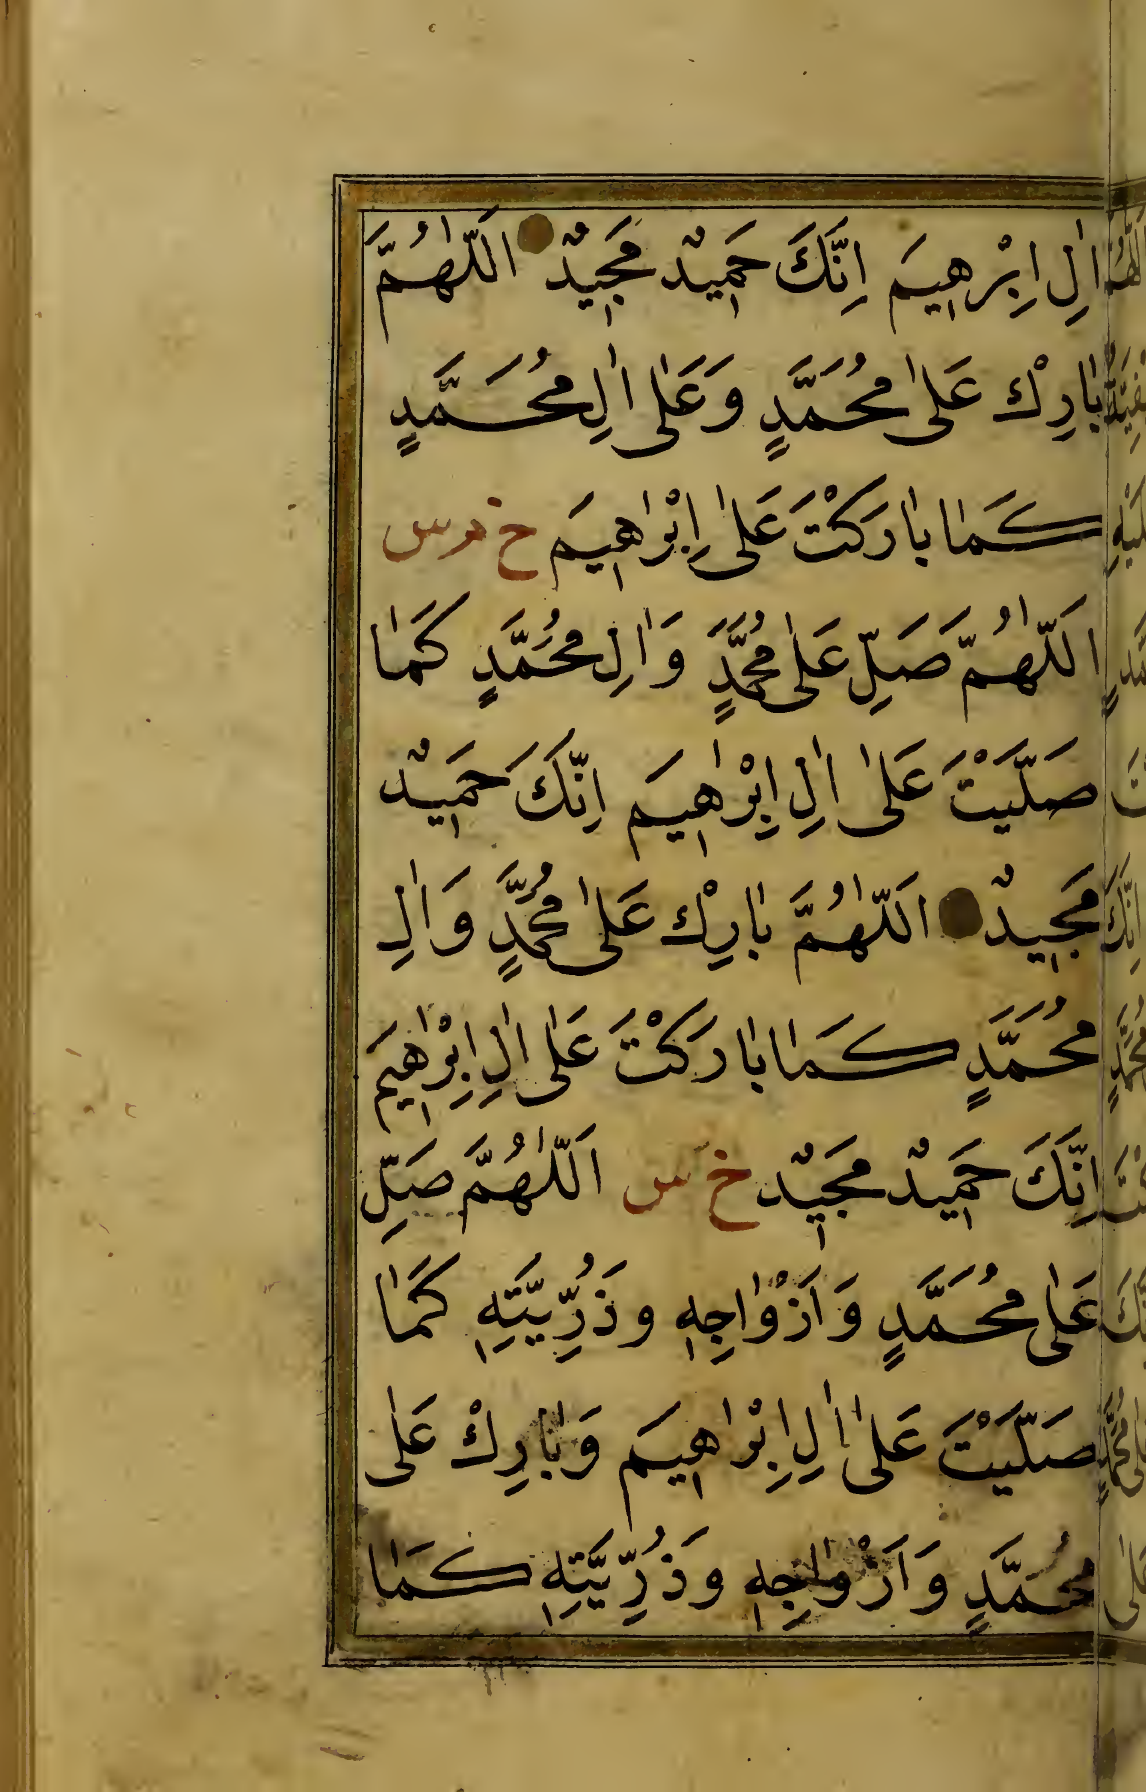 اٰلِ اِبْرٰهِيمَ اِنَّكَ حَمِيدٌ مَجِيدٌ اَللّٰهُمَّ
بَارِكْ عَلىٰ مُحَمَّدٍ وَعَلٰى اٰلِ مُحَمَّدٍ
كَمَا بَارَكْتَ عَلىٰ اِبْرٰاهِيمَ خ م س
اَللّٰهُمَّ صَلِّ عَلىٰ مُحَمَّدٍ وَاٰلِ مُحَمَّدٍ كَمَا
صَلَّيْتَ عَلىٰ اٰلِ اِبْرٰاهِيمَ اِنَّكَ حَمِيْدٌ
مَجِيدٌ اَللّٰهُمَّ بَارِكْ عَلىٰ مُحَمَّدٍ وَاٰلِ
مُحَمَّدٍ كَمَا بَارَكْتَ عَلٰى اٰلِ اِبْرٰاهِيمَ
اِنَّكَ حَمِيدٌ مَجِيدٌ خ س اَللّٰهُمَّ صَلِّ
عَلٰى مُحَمَّدٍ وَاَزْوَاجِهِ وَذُرِّيَّتِهِ كَمَا
صَلَّيْتَ عَلىٰ اٰلِ اِبْرٰاهِيمَ وَبَارِكْ عَلٰى
مُحَمَّدٍ وَاَزْوَاجِهِ وَذُرِّيَّتِهِ كَمَا